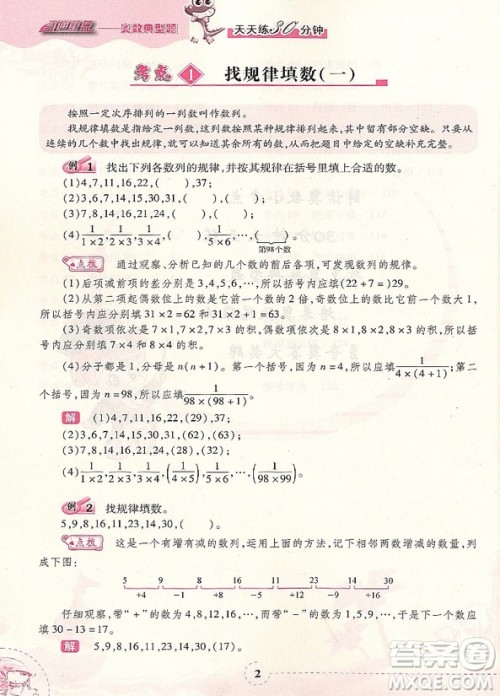 奥数典型题
天天练30分钟
考点1 找规律填数(一)
按照一定次序排列的一列数叫作数列。
找规律填数是指给定一列数,这列数按照某种规律排列,其中有部分空缺。从
连续的几个数中找出规律,就可以知道其余所有的数,此类问题的题目要求将空缺部分补充完整。
例1 找出下列各数列的规律,并按其规律在括号里填上合适的数。
(1)4,7,11,16,22,( ),37;
(2)3,6,7,14,15,30,( );
(3)7,8,14,16,21,24,( ),( );
(4)1/1×2,1/2×3,1/3×4,( ),1/5×6,…,( )
第98个数
点拨 通过观察、分析已知的几个数的前后各项,可发现数列的规律。
(1)后项减前项的差是 3,4,5,6,…,所以括号内应填(22+7)=(29)。
(2)从第二项起偶数位的数是前一个数的 2 倍,奇数位上的数比前一个数大 1,
所以括号内应填 31,31×2=62,62+1=63,…,所以应填 31。
(3)奇数项依次为 7×1,7×2,7×3,…的积,偶数项依次为 8×1,8×2,8×3,…
的积,所以应填 7×4=28,8×4=32。
(4)分子都为 1,分母是 n×(n+1)。因为 n=4,所以应填1/4×(4+1),第二
个括号,因为 n=98,所以应填1/98×(98+1)。
解 (1)4,7,11,16,22,(29),37;
(2)3,6,7,14,15,30,(31);
(3)7,8,14,16,21,24,(28),(32);
(4)1/1×2,1/2×3,1/3×4,(1/4×5),1/5×6,…,(1/98×99)
例2 找规律填数。
5,9,8,16,11,23,14,30,( )。
点拨 这是一个有增有减的数列,无法用公式计算,我们记下相邻两数的差,形
成下图:
5 9 8 16 11 23 14 30
+4 −1 +8 −5 +12 −9 +16
仔细观察,带“+”的数依次增大 4,带“−”的数也依次增大 4,所以括号内应填
30−13=17。
解 5,9,8,16,11,23,14,30,(17)。
2
答案圈